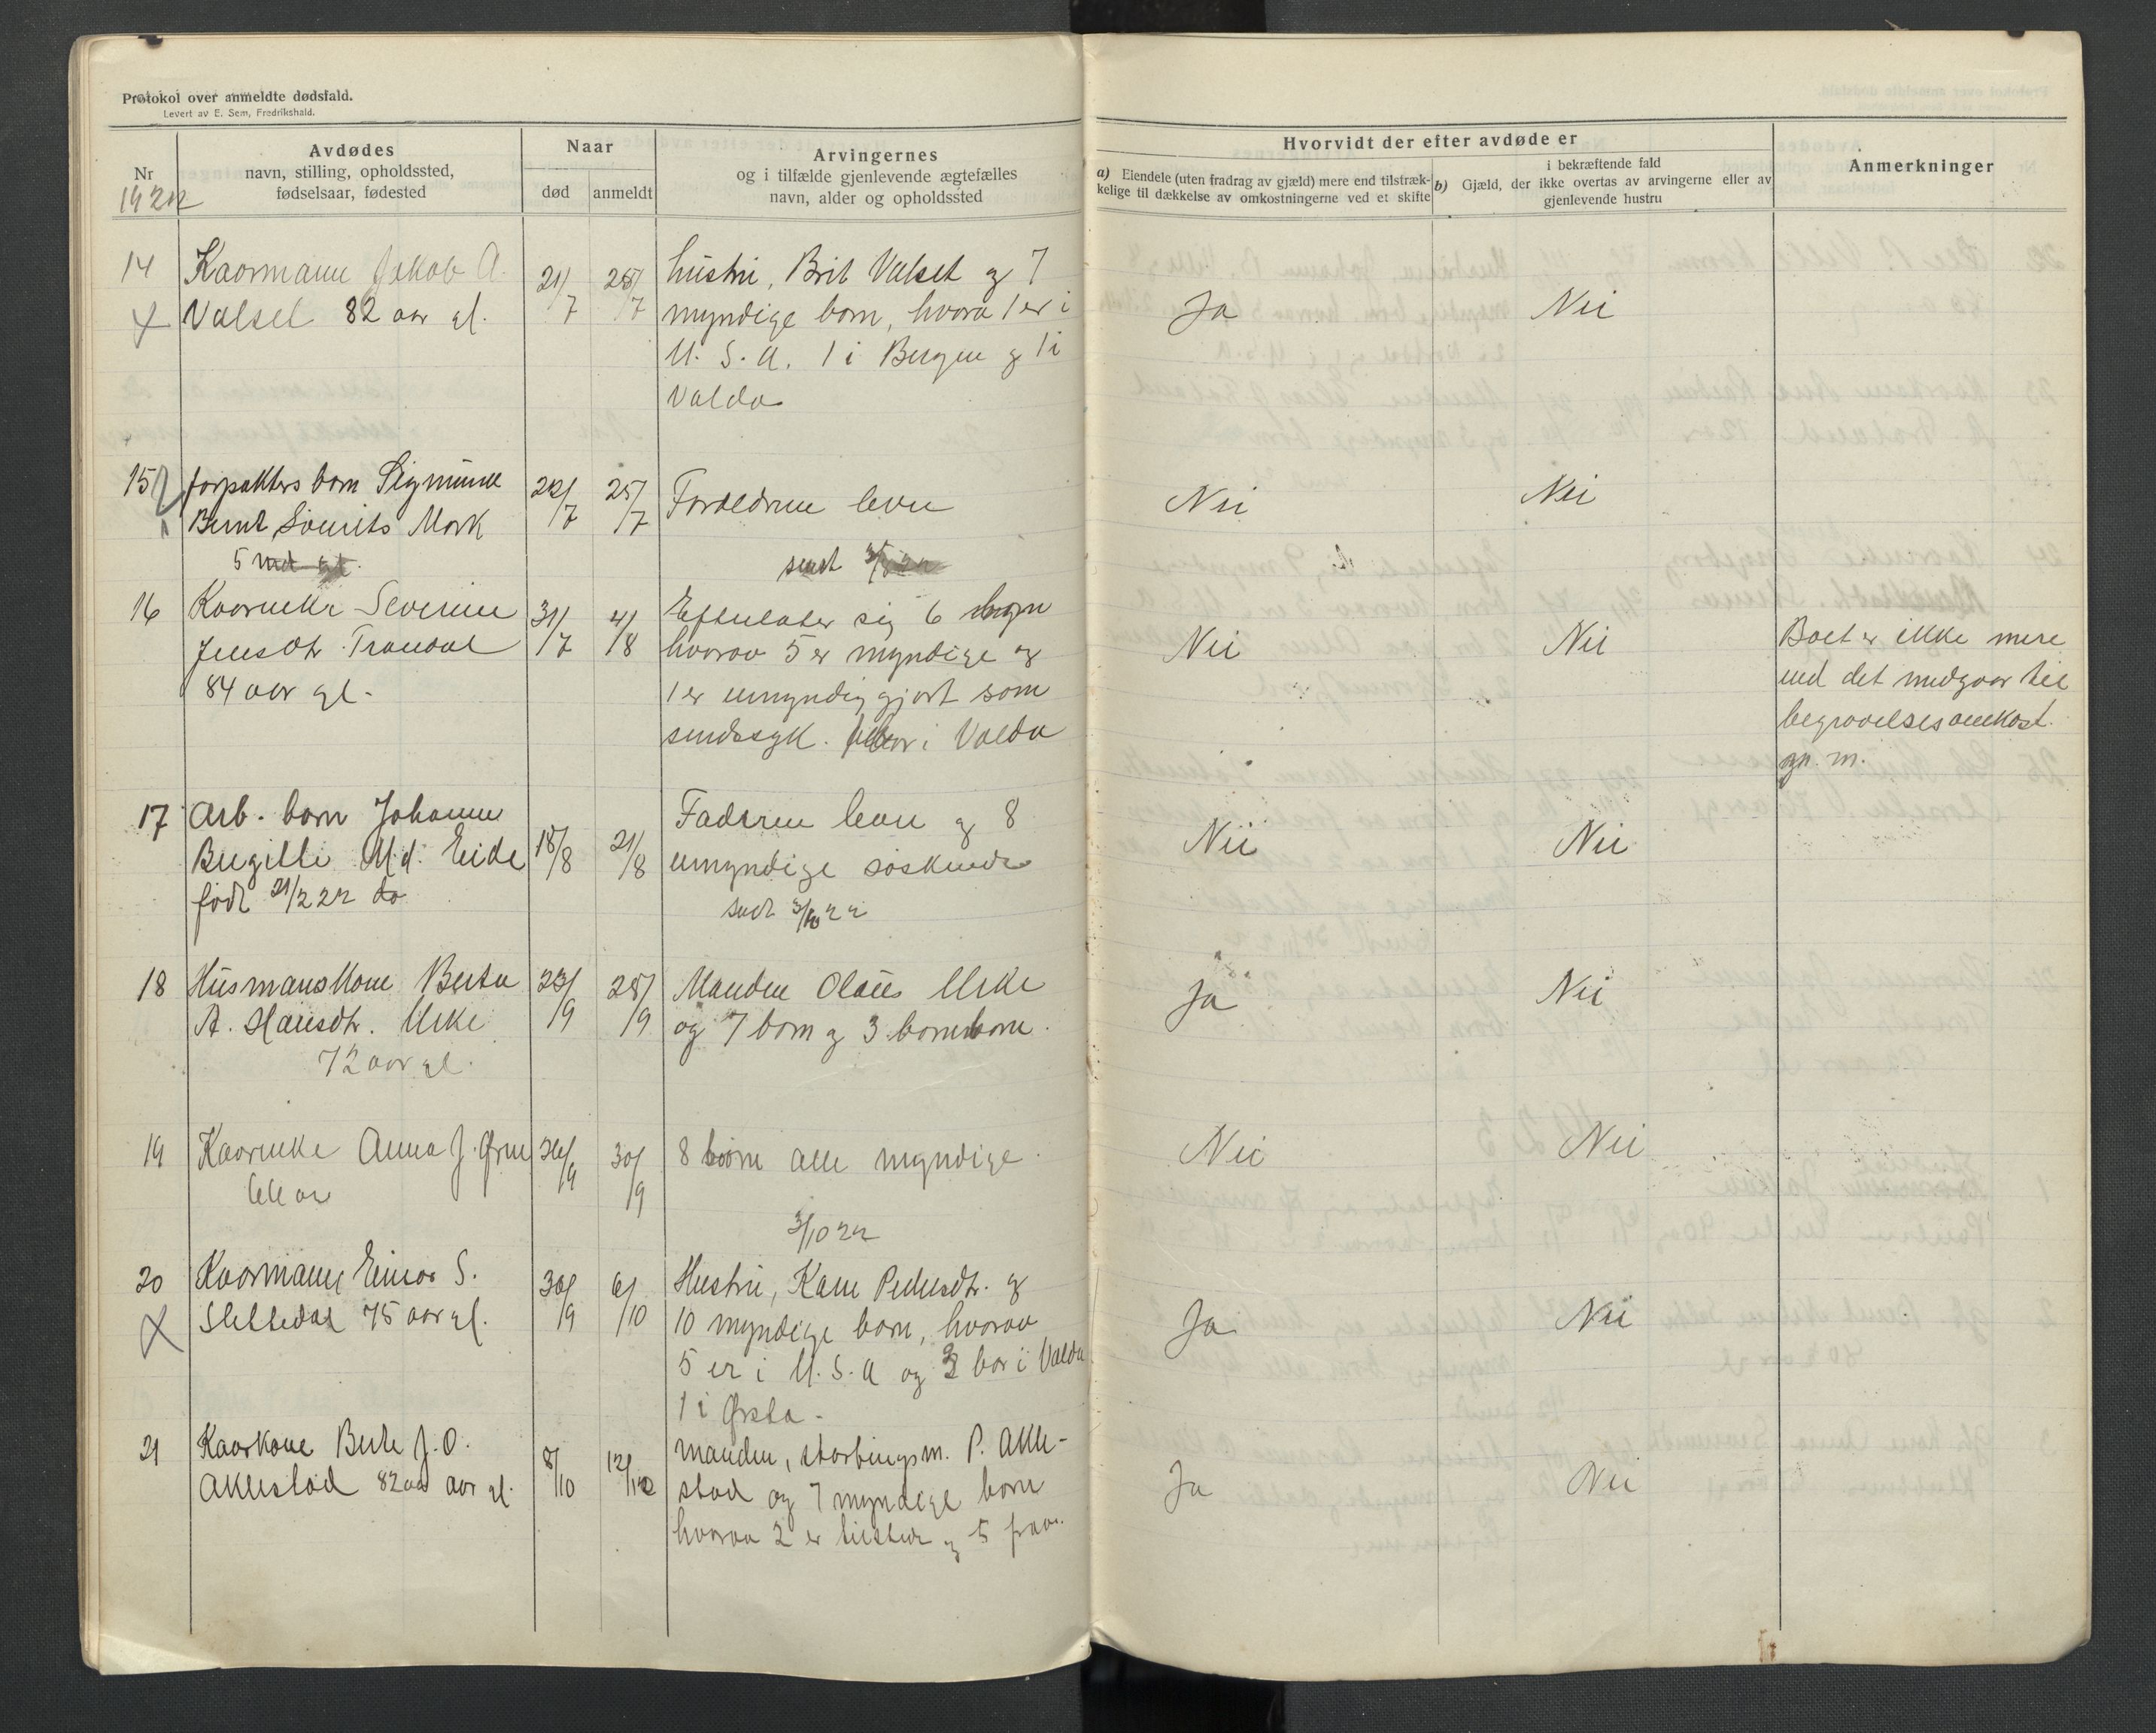 Protokol over anmeldte dødsfald.
Levert av E. Sem, Fredrikshald.
Nr
1922
Avdødes
navn, stilling, opholdssted,
fødselsaar, fødested
Naar
død anmeldt
Arvingernes
og i tilfælde gjenlevende ægtefælles
navn, alder og opholdssted
Hvorvidt der efter avdøde er
a) Eiendele (uten fradrag av gjæld) mere end tilstræk-
kelige til dækkelse av omkostningerne ved et skifte
i bekræftende fald
b) Gjæld, der ikke overtas av arvingerne eller av
gjenlevende hustru
Anmerkninger
14 Kaarmann Jakob A. 21/7 28/7 hustru, Brit Valset og 7
Valset 82 aar gl. myndige born, hvorav 1 er i Ja Nei
U. S. A. 1 i Bergen og 1 i
Volda
15 forpakters barn Sigmund 22/7 25/7 Foreldrene lever Nei Nei
Bernt Mork
5 md gl. sendt
16 Kaarenke Severine 31/7 4/8 Efterlater sig 6 born
Jensdtr. Trandal hvorav 5 er myndige og Nei Nei Boet er ikke mere
84 aar gl. 1 er umyndiggjort som end det medgaar til
sindssyk. i Volda begravelsesomkost.
m.
17 Arb. barn Johanne Fadren lever og 8
Bergitte M.d. Eide 18/8 21/8 umyndige søskende Nei Nei
født 21/2 22 do
sendt 3/10 22
18 Husmanskone Berta 23/9 28/9 Manden Olaus Urke Ja Nei
A. Hansdtr. Urke og 7 born og 3 borneborn.
72 aar gl.
19 Kaarenke Anna J. 26/9 30/9 8 born alle myndige. Nei Nei
3/10 22
20 Kaarmann Einar S. 30/9 6/10 Hustru, Kare Pedersdtr. og
Slettedal 75 aar gl. 10 myndige born, hvorav Ja Nei
5 er i U.S.A og 3 bor i Volda
1 i Ørsta.
21 Kaarkone Berte J. O. 8/10 12/10 manden, storthingsm. P. Akle-
Aklestad 82 aar gl. stad og 7 myndige born Ja Nei
hvorav 2 er tilstede og 5 frav.